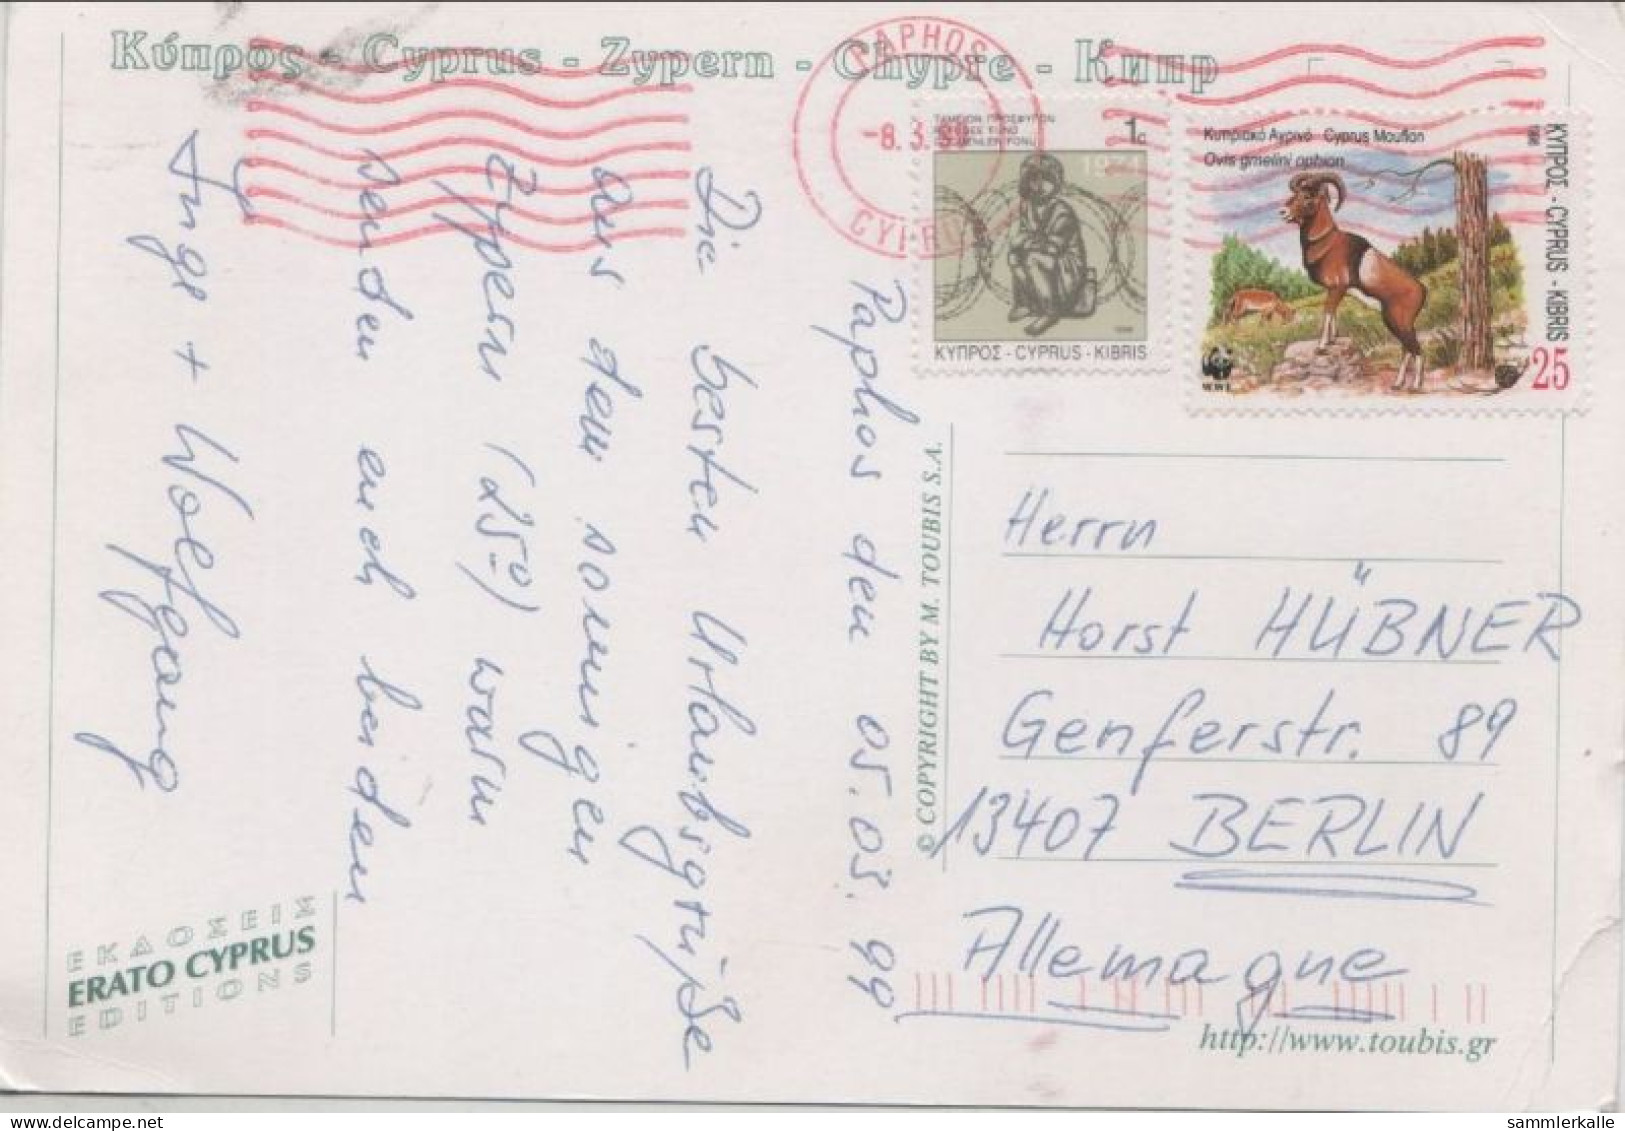 Κύπρος - Cyprus - Zypern - Chypre - Кипр
PAPHOS
-8.3.99
CYPRUS
ΤΑΜΕΙΟΝ ΠΡΟΣΦΥΓΩΝ
REFUGEE FUND
GÖÇMENLER FONU
1c
1974
ΚΥΠΡΟΣ - CYPRUS - KIBRIS
Κυπριακό Αγρινό Cyprus Mouflon
Ovis gmelini ophion
1998
ΚΥΠΡΟΣ - CYPRUS - KIBRIS
WWF
25
Paphos den 05.03.99
Die besten Urlaubsgrüße
aus dem sonnigen
Zypern (25°) warm
senden euch beiden
Inge + Wolfgang
© COPYRIGHT BY M. TOUBIS S.A.
Herrn
Horst HÜBNER
Genferstr. 89
13407 BERLIN
Allemagne
http://www.toubis.gr
ΕΚΔΟΣΕΙΣ
ERATO CYPRUS
EDITIONS
sammlerkalle